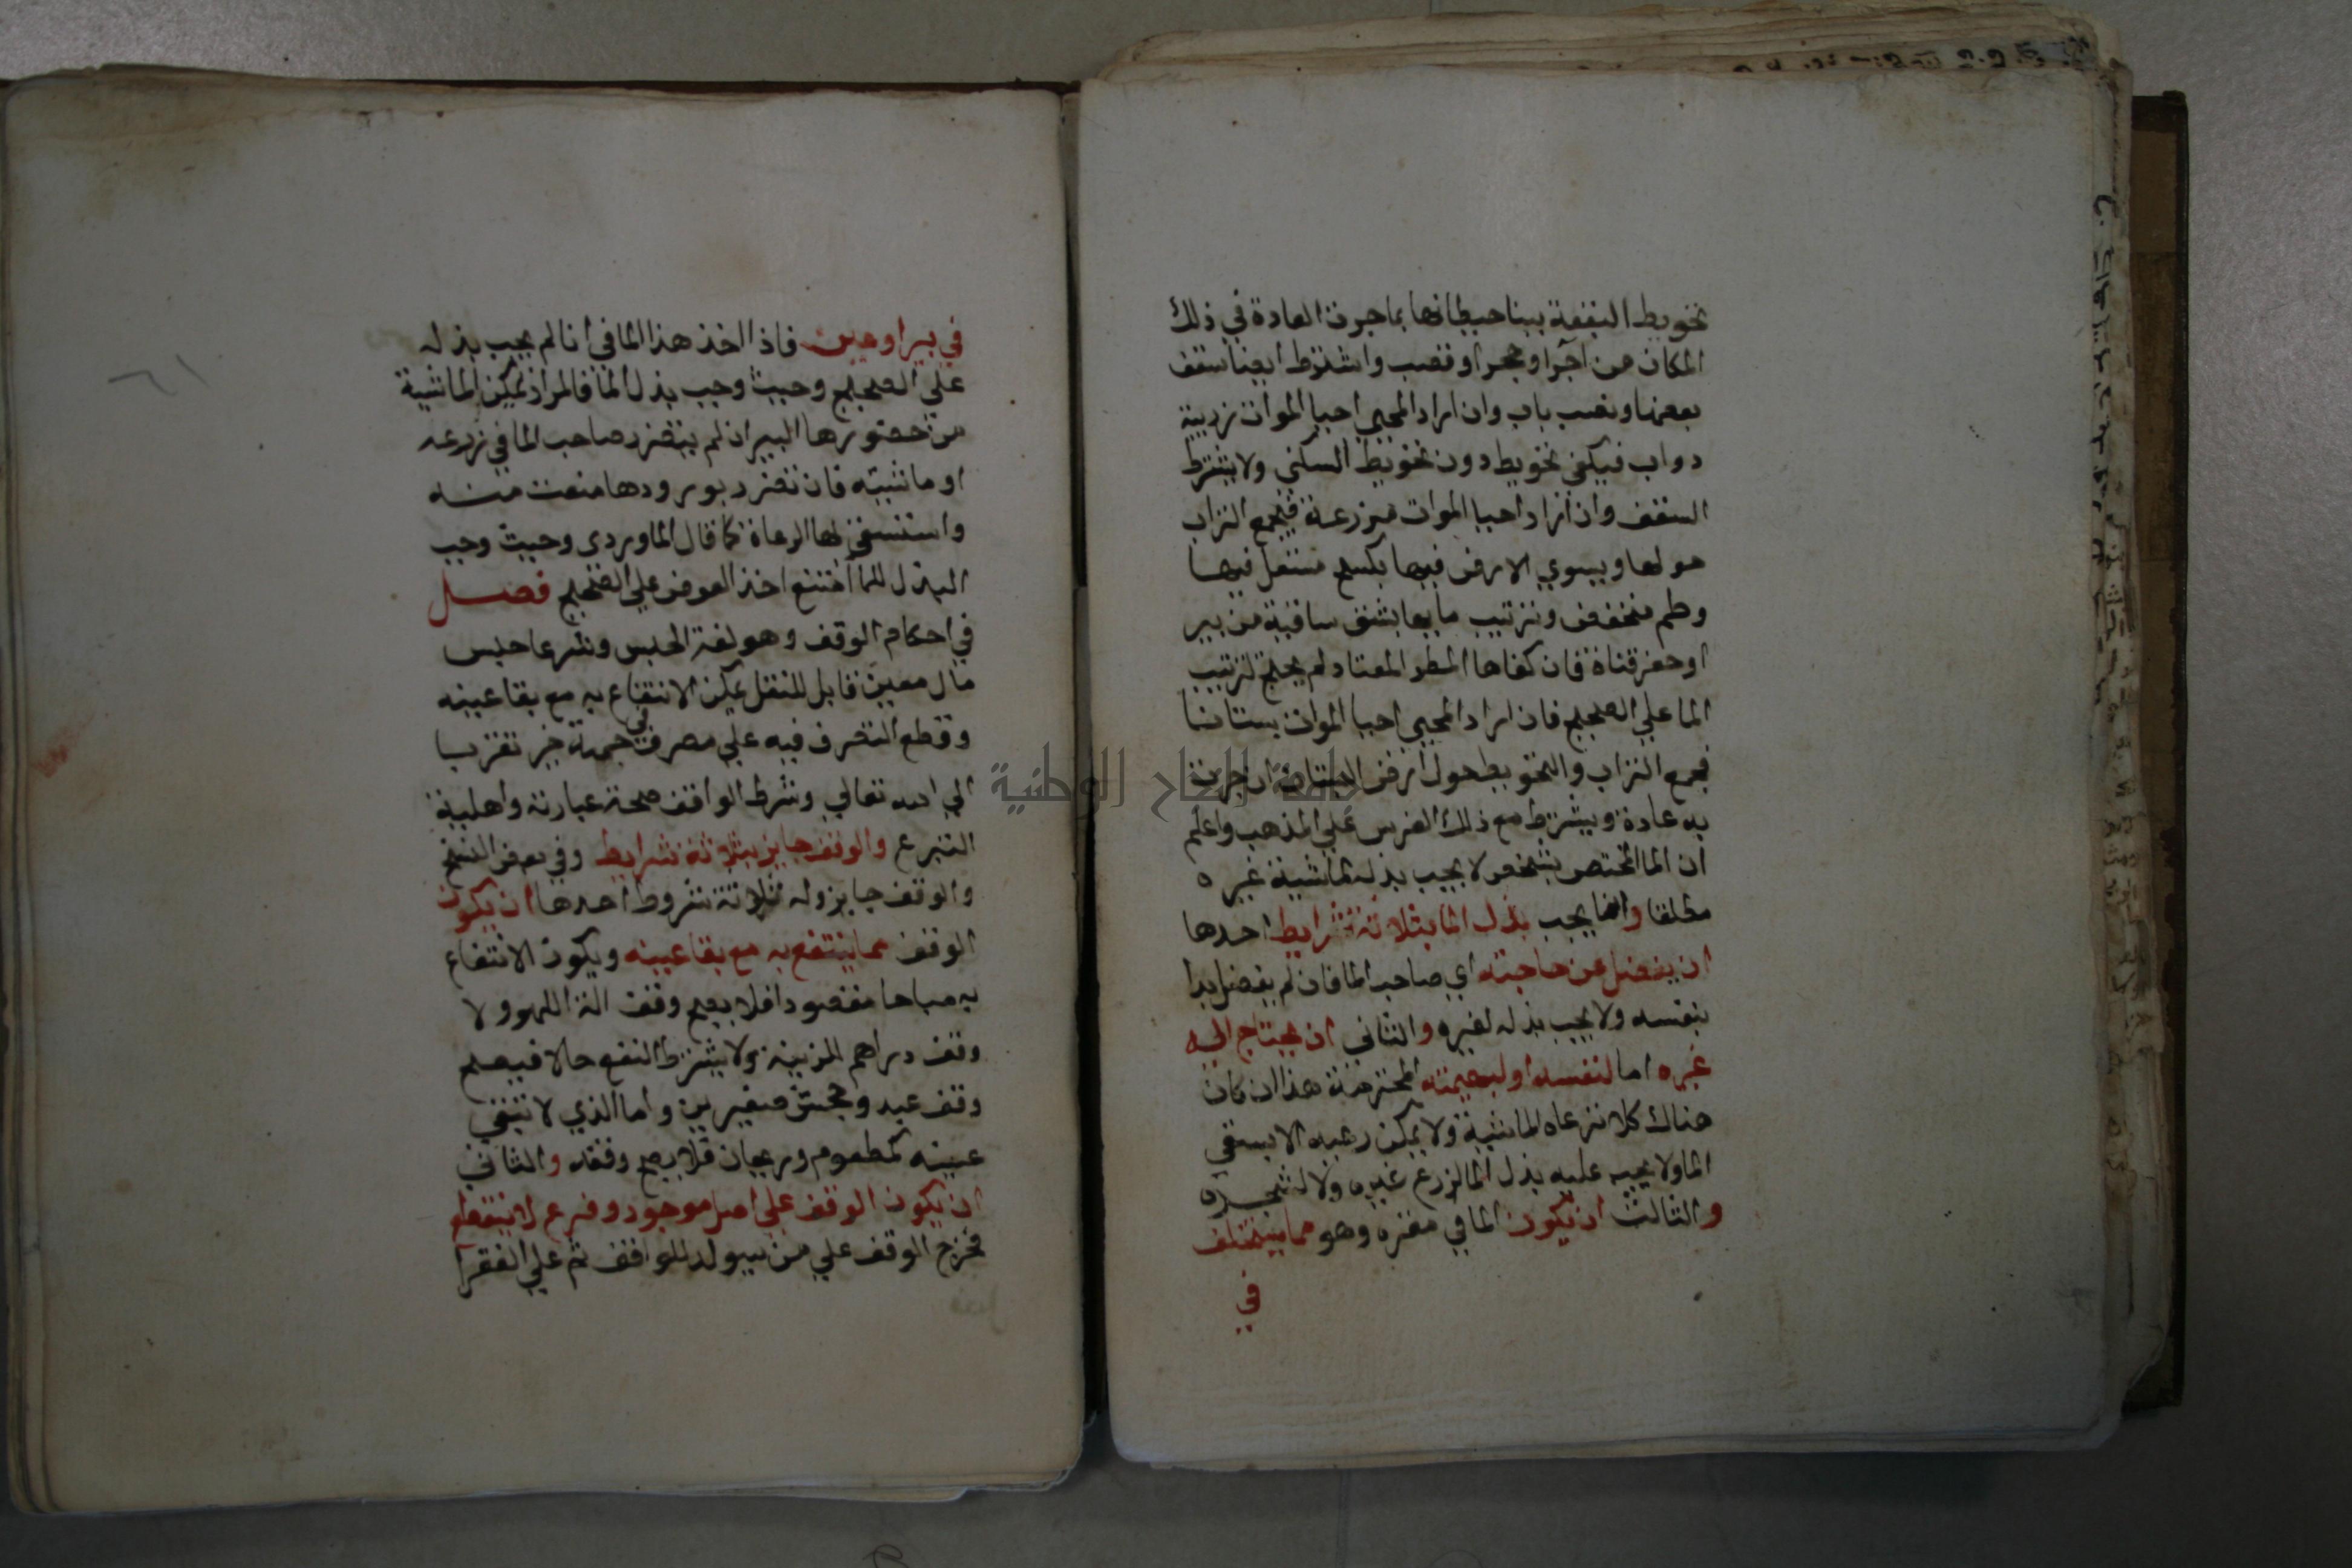 تحويط البقعة ببنا حيطانها بما جرت العادة في ذلك
المكان من آجر او حجر او قصب واشترط ايضا سقف
بعضها ونصب باب وان اراد المحيي احيا الموات زريبة
دواب فيكفي تحويط دون تحويط السكني ولا يشترط
السقف وان اراد احيا الموات مزرعة فيجمع التراب
حولها ويسوي الارض فيها بكسح مستعل فيها
وطم منخفض وترتيب ما لها بشق ساقية من بير
او حفر قناة فان كفاها المطر المعتاد لم يحتج لترتيب
الما علي الصحيح فان اراد المحيي احيا الموات بستانا
فجمع التراب والتحويط حول ارض البستان ان جرت
به عادة ويشترط مع ذلك الغرس علي المذهب واعلم
ان الما المختص بشخص لا يجب بذله لماشية غيره
مطلقا وانما يجب بذل الما بثلاثة شرايط احدها
ان يفضل عن حاجته اي صاحب الما فان لم يفضل بدا
بنفسه ولا يجب بذله لغيره والثاني ان يحتاج اليه
غيره اما لنفسه او لبهيمته المحترمة هذا ان كان
هناك كلا ترعاه الماشية ولا يمكن رعيه الا بسقي
الما ولا يجب عليه بذل الما لزرع غيره ولا لشجره
والثالث ان يكون الما في مقره وهو مما يستخلف
في
في بير او عين فاذا اخذ هذا الما في انا لم يجب بذله
علي الصحيح وحيث وجب بذل الما فالمراد تمكين الماشية
من حضورها البير ان لم يتضرر صاحب الما في زرعه
او ماشيته فان تضرر بورودها منعت منه
واستسقي لها الرعاة كما قال الماوردي وحيث وجب
البذل للما امتنع اخذ العوض علي الصحيح فصل
في احكام الوقف وهو لغة الحبس وشرعا حبس
مال معين قابل للنقل يمكن الانتفاع به مع بقا عينه
وقطع التصرف فيه علي مصرف في جهة خير تقربا
الي الله تعالي وشرط الواقف صحة عبارته واهلية
التبرع والوقف جايز بثلاثة شرايط وفي بعض النسخ
والوقف جايز وله ثلاثة شروط احدها ان يكون
الوقف مما ينتفع به مع بقا عينه ويكون الانتفاع
به مباحا مقصودا فلا يصح وقف الة اللهو ولا
وقف دراهم للزينة ولا يشترط النفع حالا فيصح
وقف عبد وجحش صغيرين واما الذي لا تبقي
عينه كمطعوم وريحان فلا يصح وقفه والثاني
ان يكون الوقف علي اصل موجود وفرع لا ينقطع
فخرج الوقف علي من سيولد للواقف ثم علي الفقرا
٦١
جامعة النجاح الوطنية